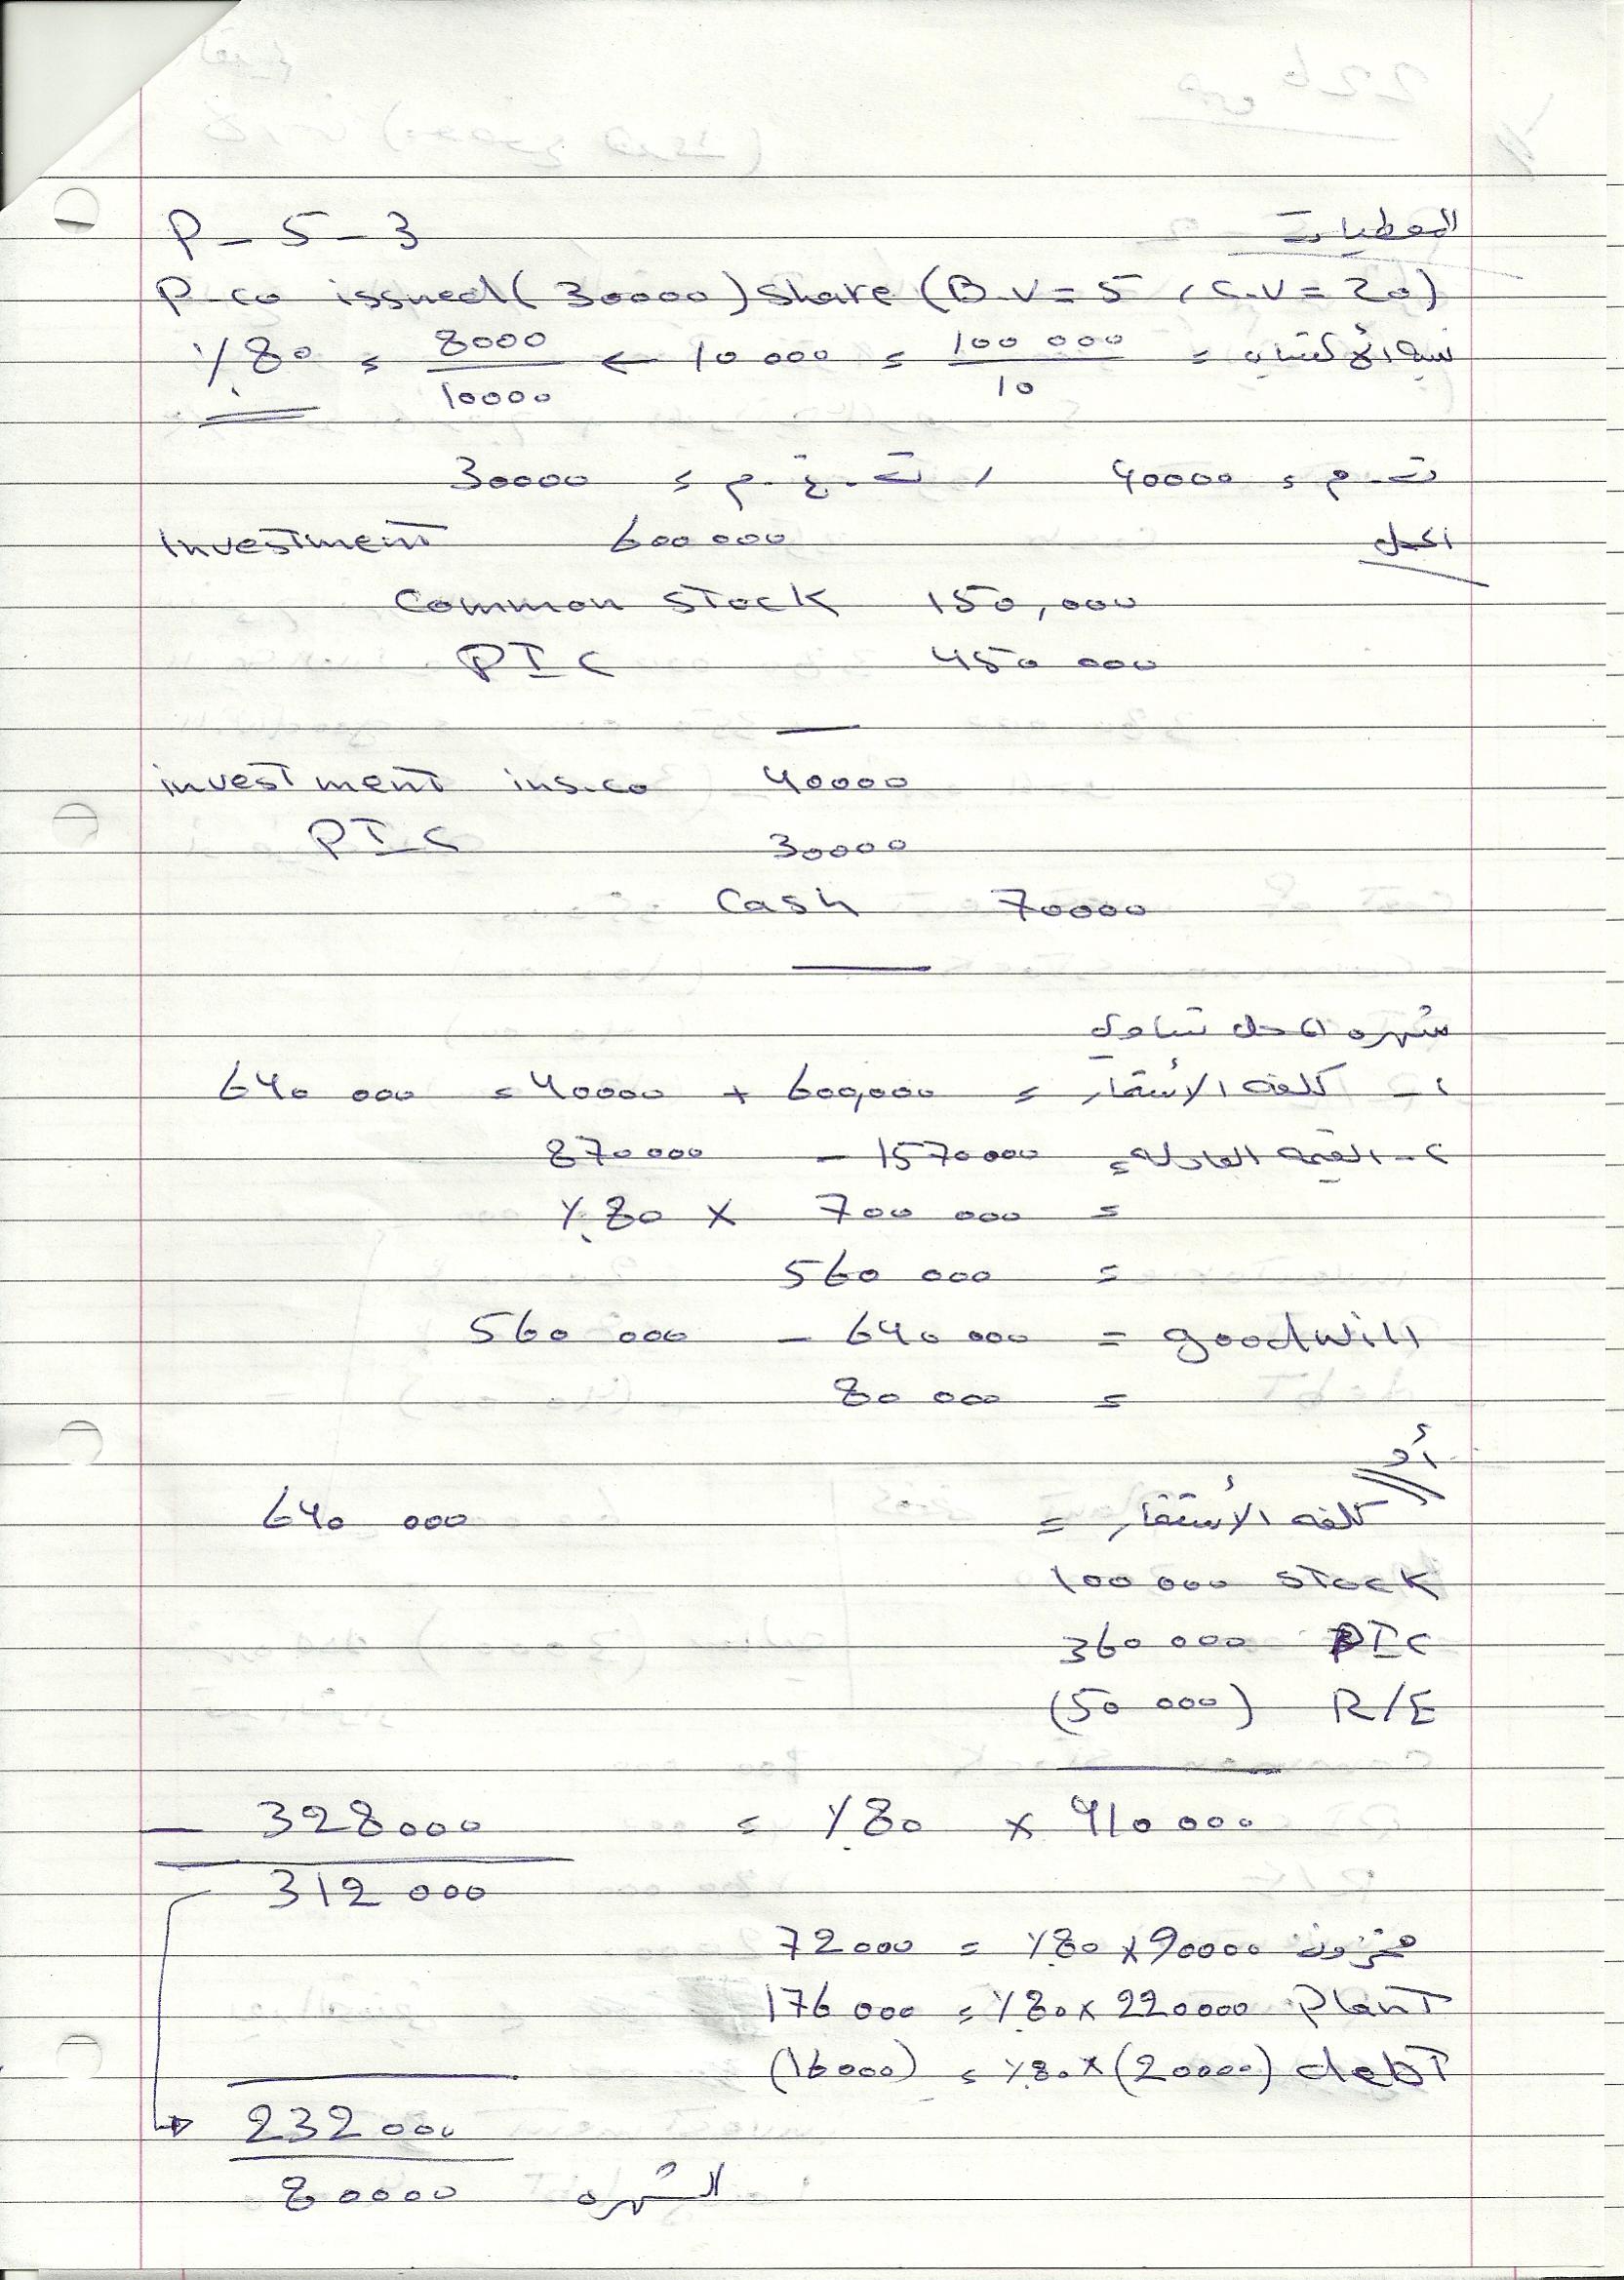 P - 5 - 3
المعطيات
P-co issued (30000) share (B.V = 5 , C.V = 20)
نسبة الأكتتاب = 100 000 / 10 = 10 000 ← 8000 / 10000 = 80 %
ت.م = 40000 , ت.غ.م = 30000
الحل
Investment 600 000
Common STock 150,000
PIC 450 000
investment in s.co 40000
PIC 30000
Cash 70000
شهره المحل تساوي
١- كلفه الأستثمار = 600,000 + 40000 = 640 000
٢- القيمه العادله = 1570000 - 870000
= 700 000 × 80 %
= 560 000
goodwill = 640 000 - 560 000
= 80 000
أو
كلفه الأستثمار = 640 000
100 000 STock
360 000 PIC
(50 000) R/E
410 000 × 80 % = 328000 -
312 000
مخزون 90000 × 80 % = 72000
PlanT 220000 × 80 % = 176 000
debT (20000) × 80 % = (16000)
232 000
80000 الشهره